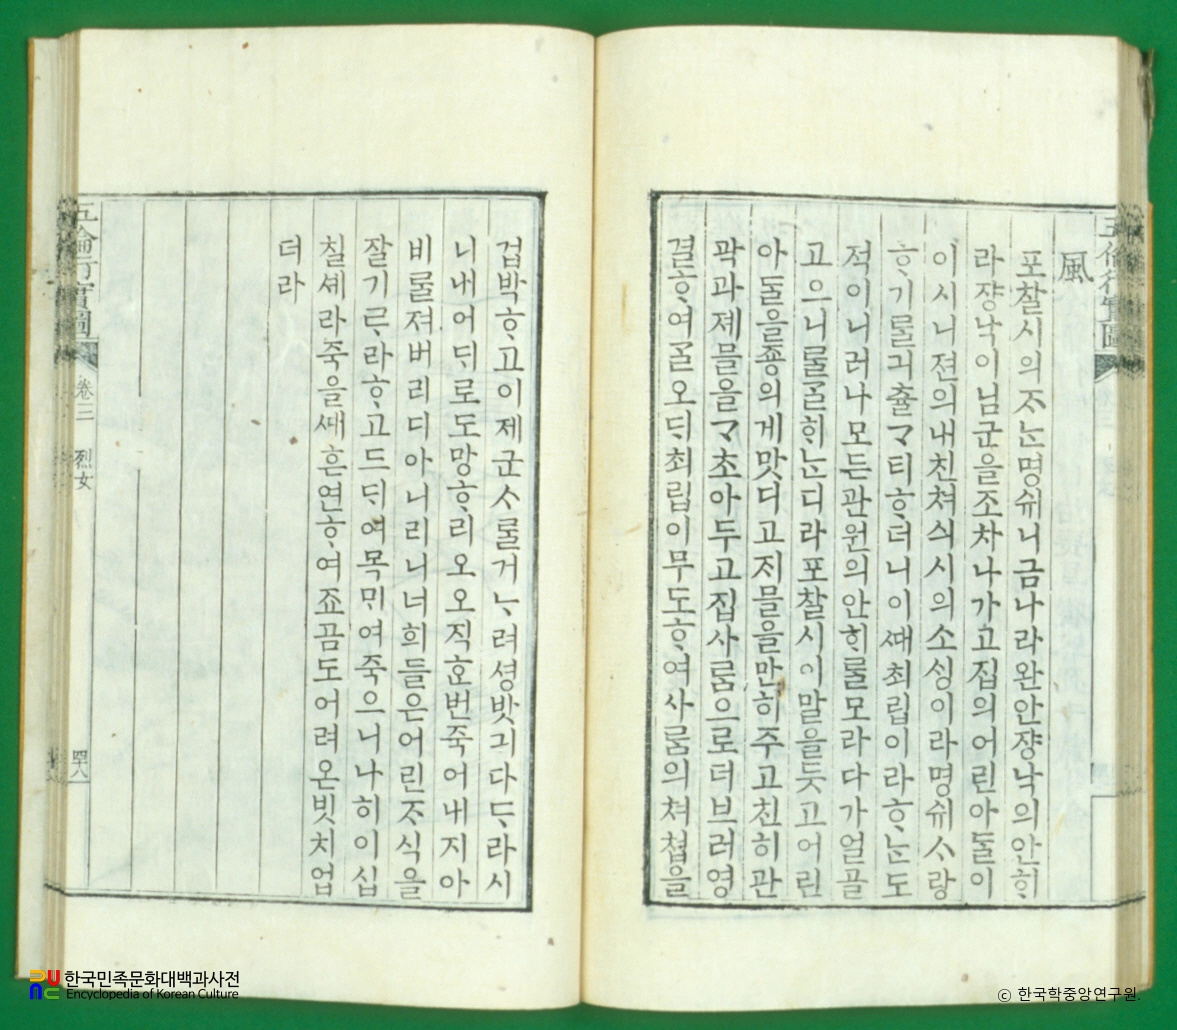 五倫行實圖
風
포찰시의ᄌᆞᄂᆞᆫ명쉬니금나라완안쟝낙의안ᄒᆡ
라쟝낙이님군을조차나가고집의어린아ᄃᆞᆯ이
이시니젼의내친쳐싀시의소ᄉᆡᆼ이라명쉬ᄉᆞ랑
ᄒᆞ기ᄅᆞᆯ긔츌ᄀᆞ티ᄒᆞ더니이ᄣᅢ최립이라ᄒᆞᄂᆞᆫ도
적이니러나모든관원의안ᄒᆡᄅᆞᆯ모라다가얼골
고으니ᄅᆞᆯᄀᆞᆯᄒᆡᄂᆞᆫ디라포찰시이말을듯고어린
아ᄃᆞᆯ을죵의게맛디고ᄌᆡ믈을만히주고친히관
곽과졔믈을ᄀᆞ초아두고집사ᄅᆞᆷ으로더브러영
결ᄒᆞ여ᄀᆞᆯ오ᄃᆡ최립이무도ᄒᆞ여사ᄅᆞᆷ의쳐쳡을
겁박ᄒᆞ고이제군ᄉᆞᄅᆞᆯ거ᄂᆞ려셩밧긔다ᄃᆞ라시
니내어ᄃᆡ로도망ᄒᆞ리오오직ᄒᆞᆫ번죽어내지아
비ᄅᆞᆯ져버리디아니리니너희들은어린ᄌᆞ식을
잘기ᄅᆞ라ᄒᆞ고드ᄃᆡ여목ᄆᆡ여죽으니나히이십
칠셰라죽을ᄣᅢ흔연ᄒᆞ여죠곰도어려온빗치업
더라
五倫行實圖 卷三 烈女 四十八
한국민족문화대백과사전
Encyclopedia of Korean Culture
ⓒ 한국학중앙연구원.